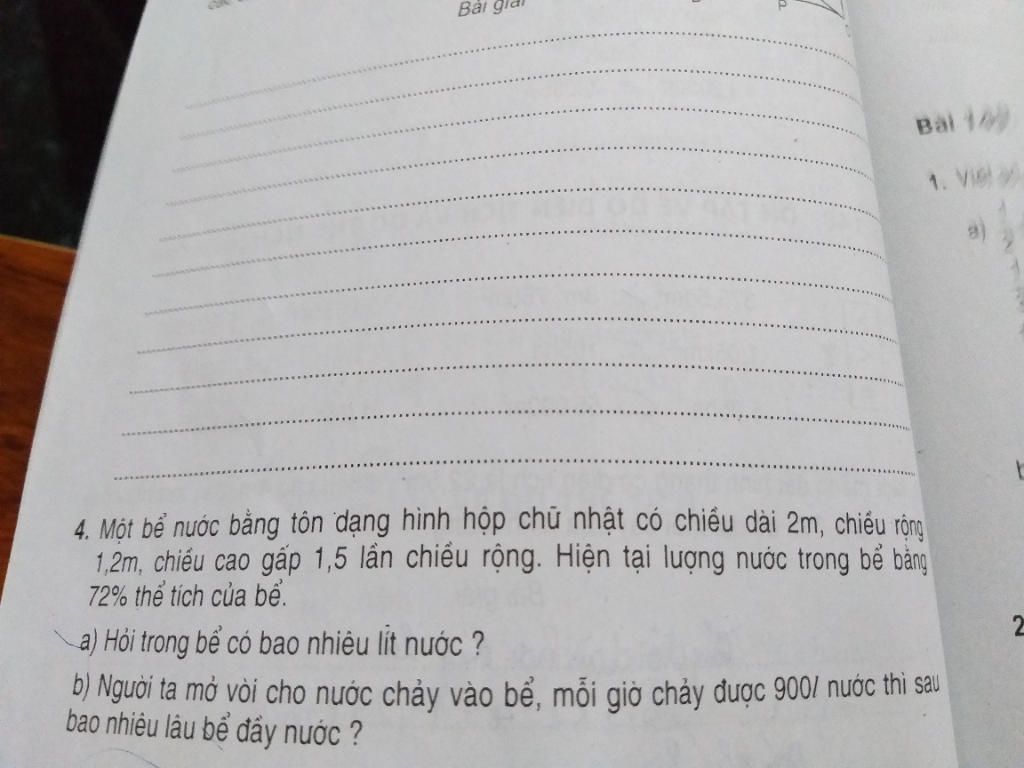 Bài giải
P
4. Một bể nước bằng tôn dạng hình hộp chữ nhật có chiều dài 2m, chiều rộng
1,2m, chiều cao gấp 1,5 lần chiều rộng. Hiện tại lượng nước trong bể bằng
72% thể tích của bể.
a) Hỏi trong bể có bao nhiêu lít nước ?
b) Người ta mở vòi cho nước chảy vào bể, mỗi giờ chảy được 900l nước thì sau
bao nhiêu lâu bể đầy nước ?
Bài
1. Viết
a)
2